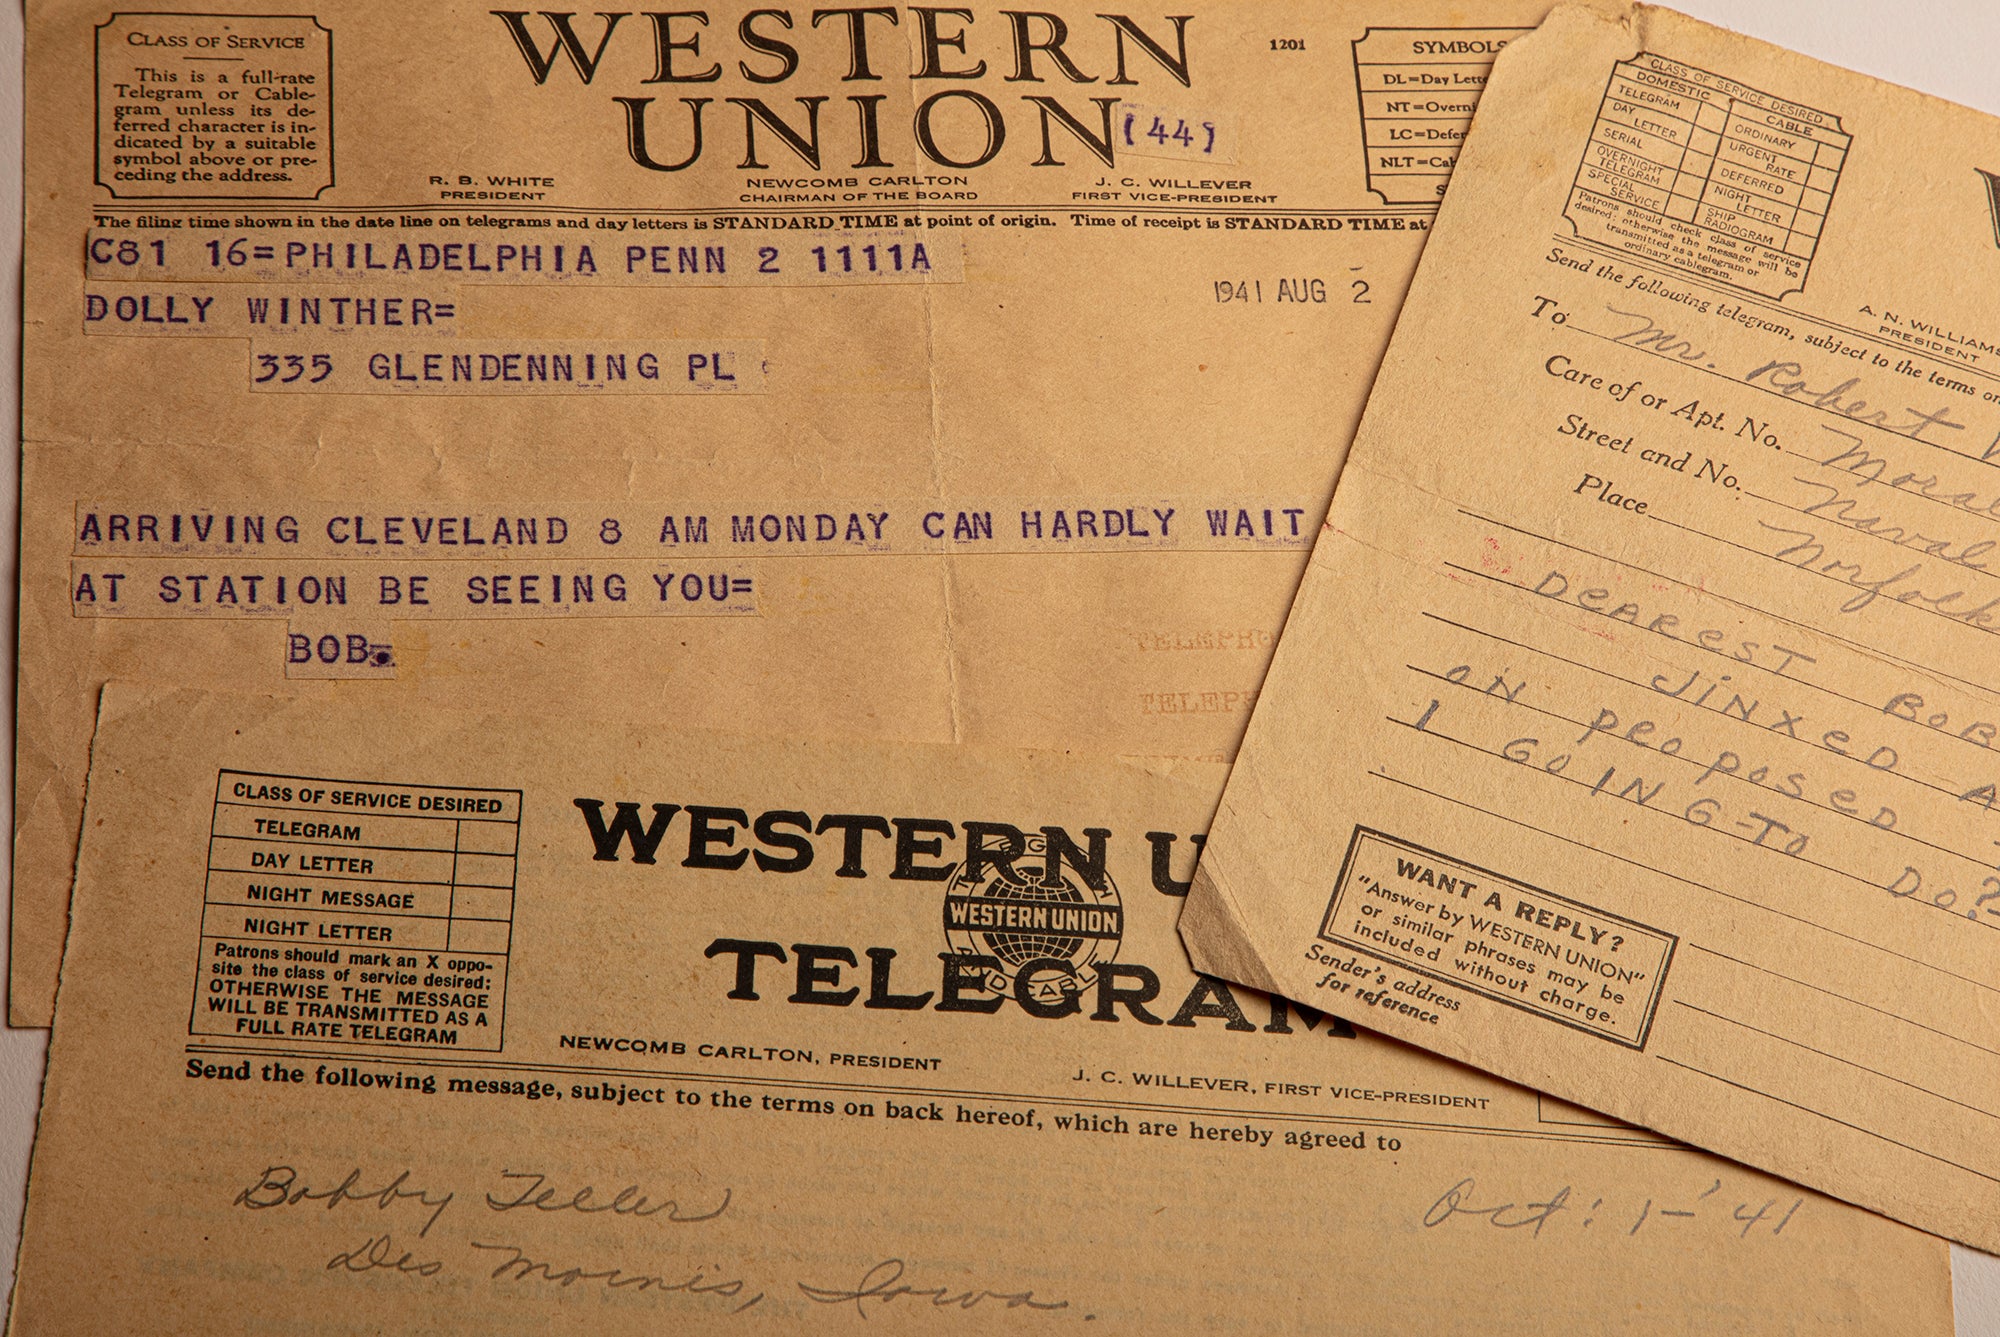 CLASS OF SERVICE
This is a full-rate
Telegram or Cable-
gram unless its de-
ferred character is in-
dicated by a suitable
symbol above or pre-
ceding the address.
WESTERN
UNION
(44)
1201
R. B. WHITE
PRESIDENT
NEWCOMB CARLTON
CHAIRMAN OF THE BOARD
J. C. WILLEVER
FIRST VICE-PRESIDENT
SYMBOLS
DL=Day Lette
NT=Overni
LC=Defer
NLT=Cab
The filing time shown in the date line on telegrams and day letters is STANDARD TIME at point of origin. Time of receipt is STANDARD TIME at
C81 16=PHILADELPHIA PENN 2 1111A
1941 AUG 2
DOLLY WINTHER=
335 GLENDENNING PL
ARRIVING CLEVELAND 8 AM MONDAY CAN HARDLY WAIT
AT STATION BE SEEING YOU=
BOB.
TELEPHO
TELEPH
CLASS OF SERVICE DESIRED
DOMESTIC
CABLE
TELEGRAM
ORDINARY
DAY LETTER
URGENT RATE
SERIAL
DEFERRED
OVERNIGHT TELEGRAM
NIGHT LETTER
SPECIAL SERVICE
SHIP RADIOGRAM
Patrons should check class of service
desired; otherwise the message will be
transmitted as a telegram or
ordinary cablegram.
A. N. WILLIAMS
PRESIDENT
Send the following telegram, subject to the terms on
To Mr. Robert
Care of or Apt. No. Moral
Street and No. Naval
Place Norfolk
DEAREST BOB
JINXED A
ON PROPOSED
I GOING TO DO?
WANT A REPLY?
"Answer by WESTERN UNION"
or similar phrases may be
included without charge.
Sender's address
for reference
CLASS OF SERVICE DESIRED
TELEGRAM
DAY LETTER
NIGHT MESSAGE
NIGHT LETTER
Patrons should mark an X oppo-
site the class of service desired:
OTHERWISE THE MESSAGE
WILL BE TRANSMITTED AS A
FULL RATE TELEGRAM
WESTERN U
WESTERN UNION
TELEGRAM
TELEGRAPH AND CABLE
NEWCOMB CARLTON, PRESIDENT
J. C. WILLEVER, FIRST VICE-PRESIDENT
Send the following message, subject to the terms on back hereof, which are hereby agreed to
Bobby Teller
Oct: 1-'41
Des Moines, Iowa.